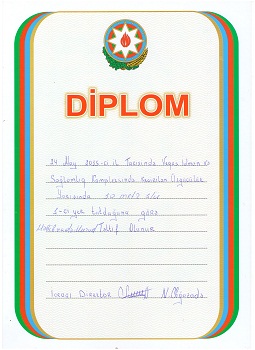 DİPLOM
24 May 2025-ci il Tarixində Vegas İdman və
Sağlamlıq Kompleksində keçirilən Üzgüçülük
Yarışında 50 metr
1-ci yer tutduğuna görə
Təltif Olunur
İcraçı Direktor N.